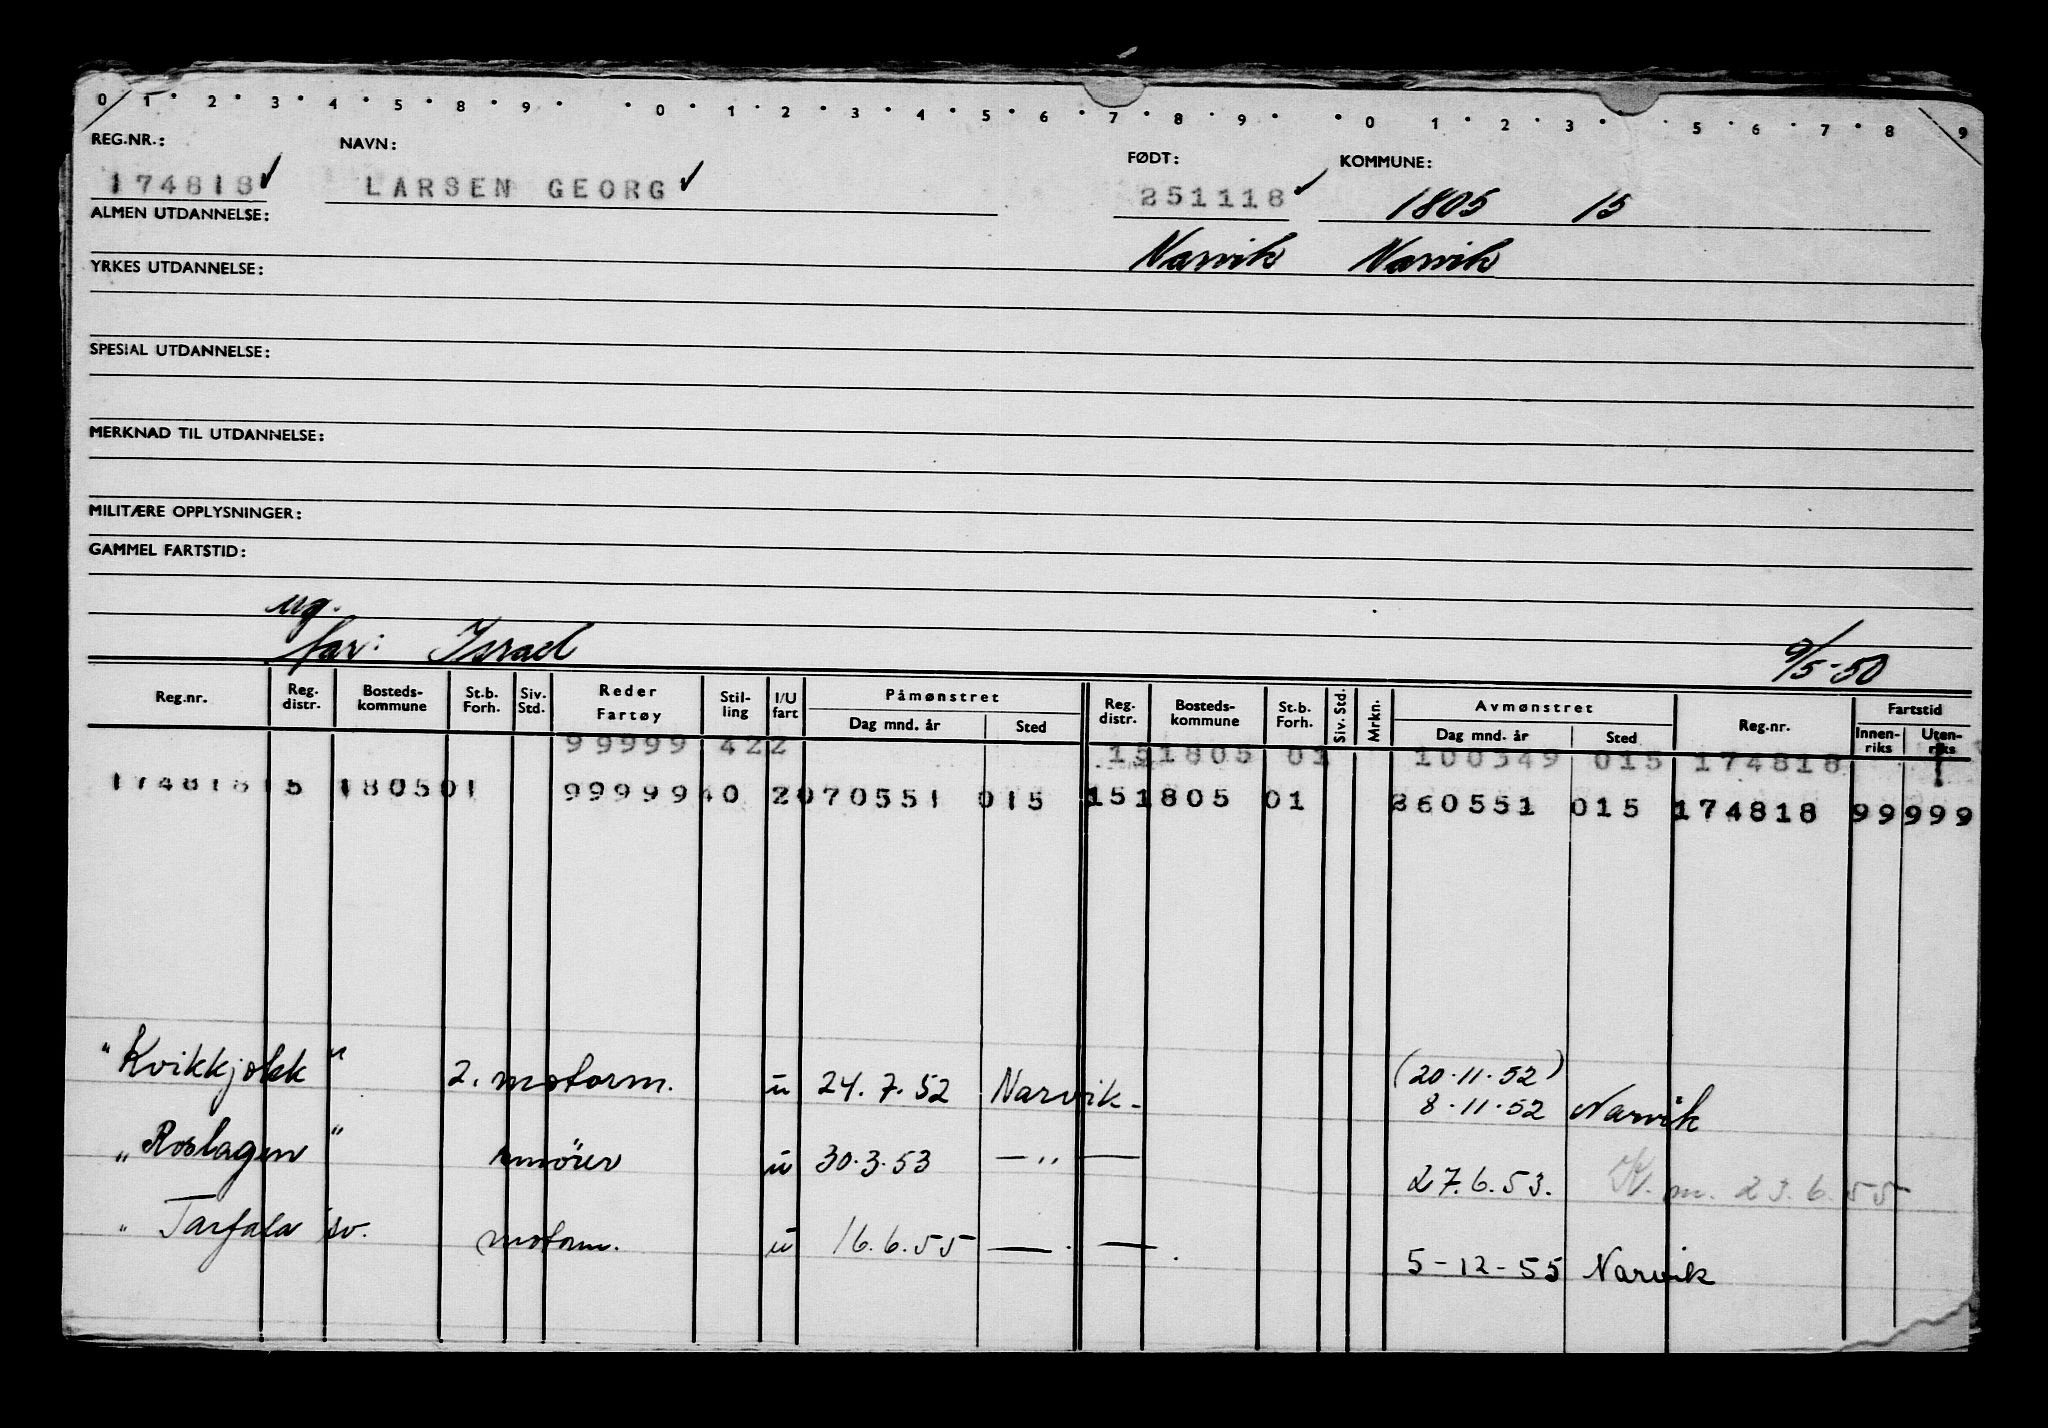 0 1 · 2 · 3 · 4 · 5 · 8 · 9 · · 0 · 1 · 2 · 3 · 4 · 5 · 6 · 7 · 8 · 9 · · 0 1 · 2 · 3 · 5 · 6 · 7 · 8 9
REG.NR.: NAVN: FØDT: KOMMUNE:
174818 LARSEN GEORG 251118 1805 15
ALMEN UTDANNELSE:
Narvik Narvik
YRKES UTDANNELSE:
SPESIAL UTDANNELSE:
MERKNAD TIL UTDANNELSE:
MILITÆRE OPPLYSNINGER:
GAMMEL FARTSTID:
ug.
far: Israel 9/5-50
Reg.nr. Reg. distr. Bosteds-kommune St.b. Forh. Siv. Std. Reder Fartøy Stil-ling I/U fart Påmønstret Dag mnd. år Sted Reg. distr. Bosteds-kommune St.b. Forh. Siv. Std. Mrkn. Avmønstret Dag mnd. år Sted Reg.nr. Fartstid Innen-riks Uten-riks
99999 422 151805 01 100349 015 174818
174818 15 180501 9999940 2070551 015 151805 01 260551 015 174818 99999
"Kvikkjokk" 2. motorm. u 24.7.52 Narvik- (20.11.52)
8.11.52 Narvik
"Roslagen" smører u 30.3.53 — " — 27.6.53. K. m. 23.6.55
" Tarfala sv. motorm. u 16.6.55 — . — . 5-12-55 Narvik